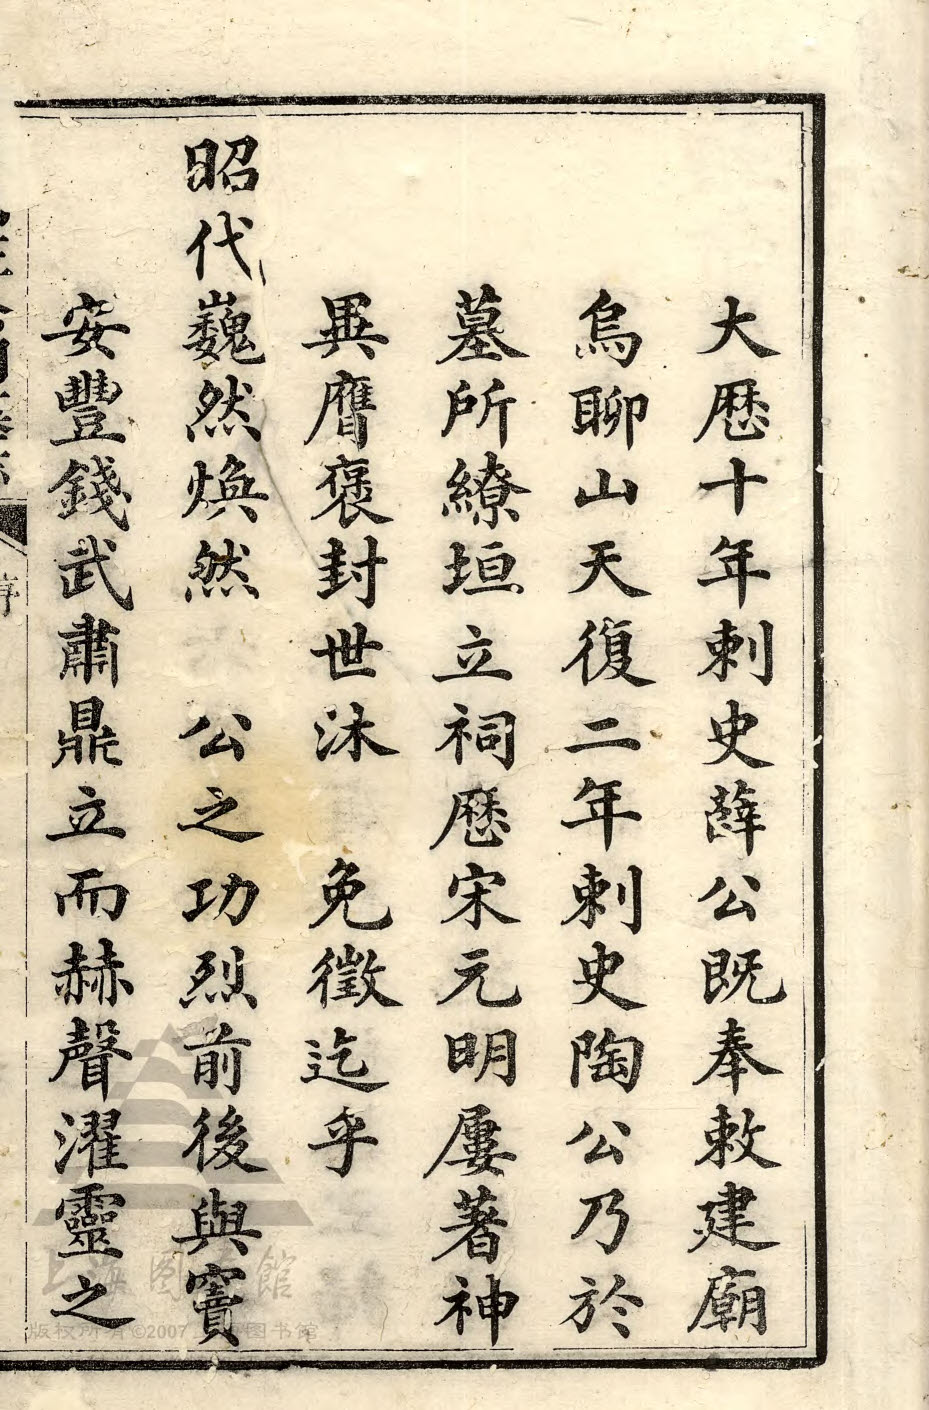 大歷十年刺史薛公既奉敕建廟
烏聊山天復二年刺史陶公乃於
墓所繚垣立祠歷宋元明屢著神
異膺褒封世沐　免徵迄乎
昭代巍然煥然　公之功烈前後與竇
安豐錢武肅鼎立而赫聲濯靈之
序
上海图书馆
版权所有©2007上海图书馆